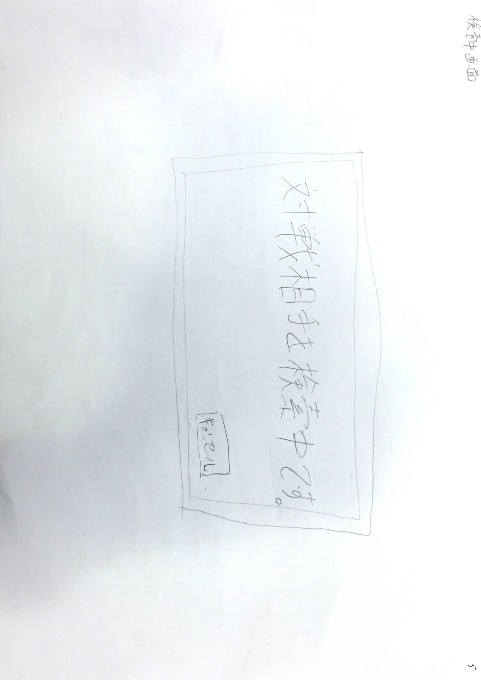 検索中画面
対戦相手を検索中です。
キャンセル
5